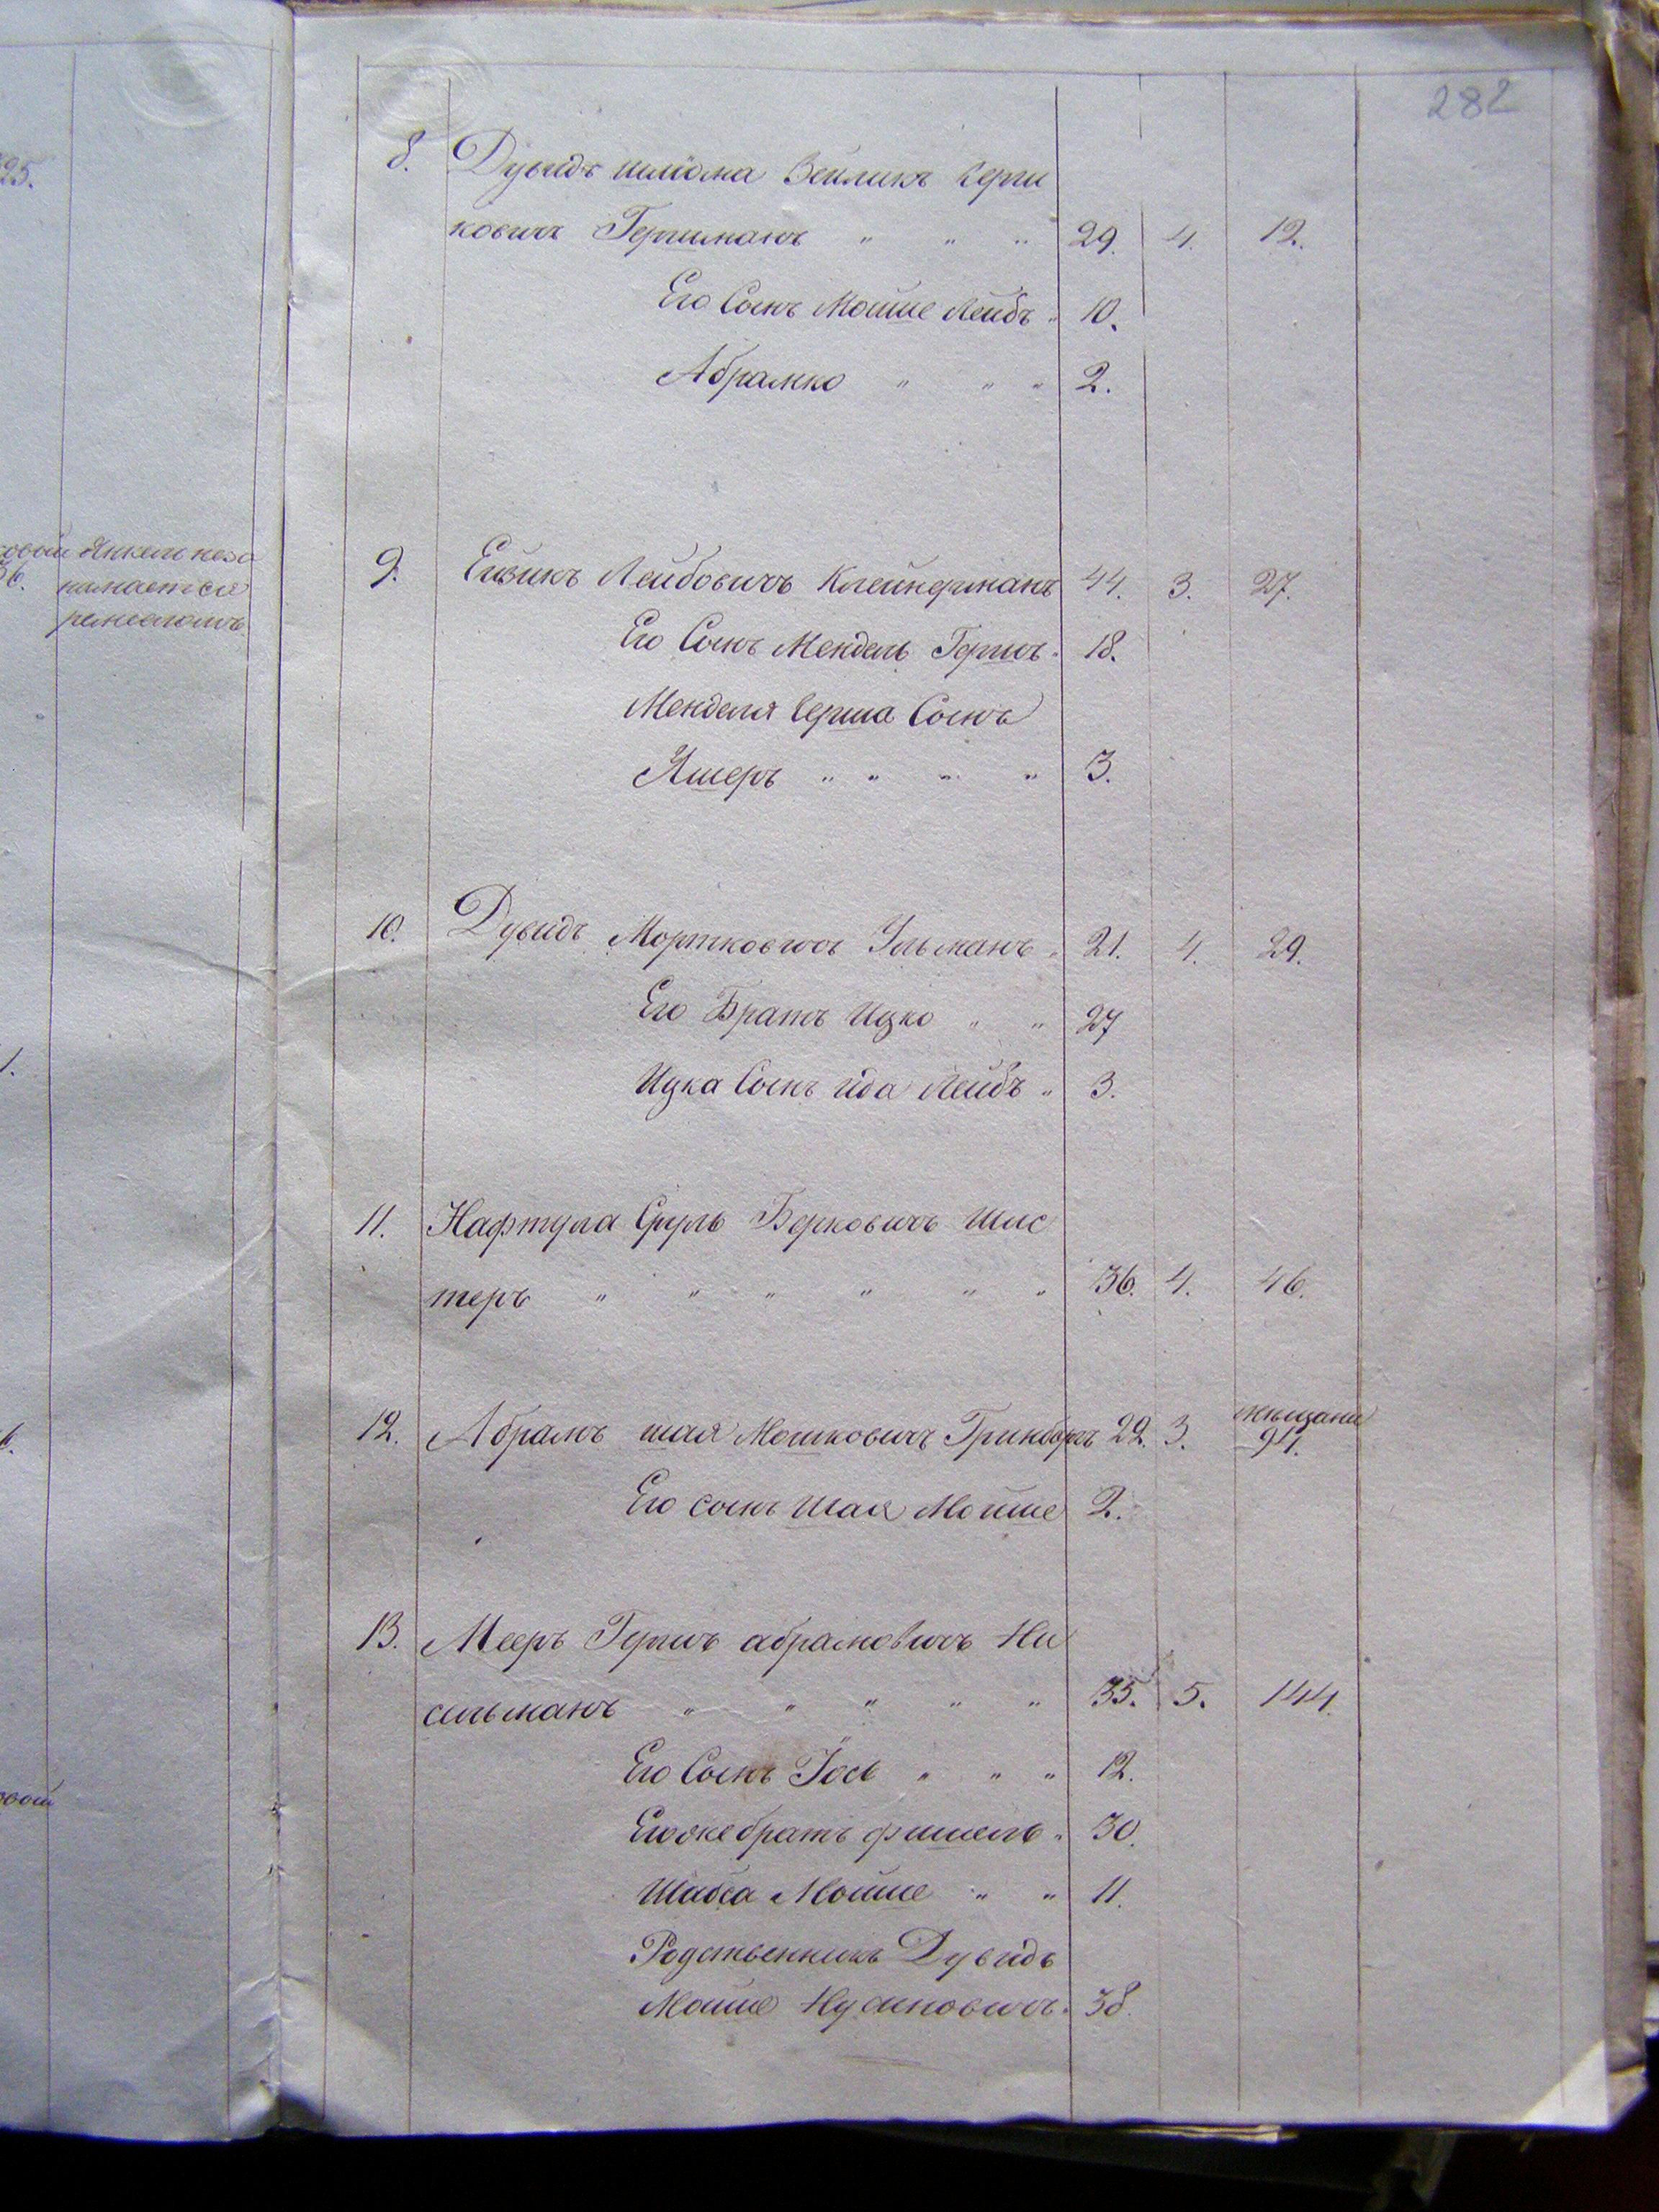 282
25.
8. Дувидъ шлiома Зейликъ герш
ковичъ Гершманъ " " " 29. 4. 12.
Его Сынъ Мойше Лейбъ " 10.
Абрамко " " " 2.
Янкель неза
нимается
ремесломъ
9. Ейзикъ Лейбовичъ Клейнерманъ 44. 3. 27.
Его Сынъ Мендель Гершъ " 18.
Менделя герша Сынъ
Яшеръ " " " " 3.
10. Дувидъ Мортковичъ Ульманъ " 21. 4. 29.
Его Братъ Ицко " " 27
Ицка Сынъ Ида Лейбъ " 3.
11. Нафтула Сруль Берковичъ Шис
теръ " " " " " " 36. 4. 46.
12. Абрамъ шая Мошковичъ Гринбергъ 22. 3. мещани 94.
Его сынъ Шая Мойше 2.
13. Мееръ Гершъ абрамовичъ Ни
сельманъ " " " " " 35. 5. 144.
Его Сынъ Iось " " " 12.
Егоже братъ фишель " 30.
Шабса Мойше " " 11.
Родственникъ Дувидъ
Мойше Нусиновичъ " 38.